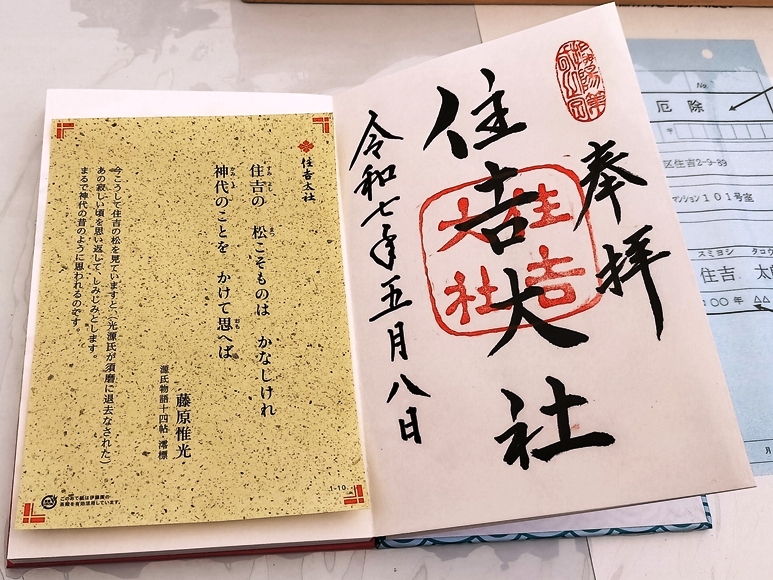 奉拝
住吉大社
住吉
大社
令和七年五月八日
住吉大社
住吉の 松こそものは かなしけれ
神代のことを かけて思へば
藤原惟光
源氏物語十四帖 澪標
今こうして住吉の松を見ていますと、(光源氏が須磨に退去なされた)
あの寂しい頃を思い返して、しみじみとします。
まるで神代の昔のように思われるのです。
1-10
No.
厄除
〒
区住吉2-9-89
マンション101号室
スミヨシ タロウ
住吉 太郎
00年 △△
月